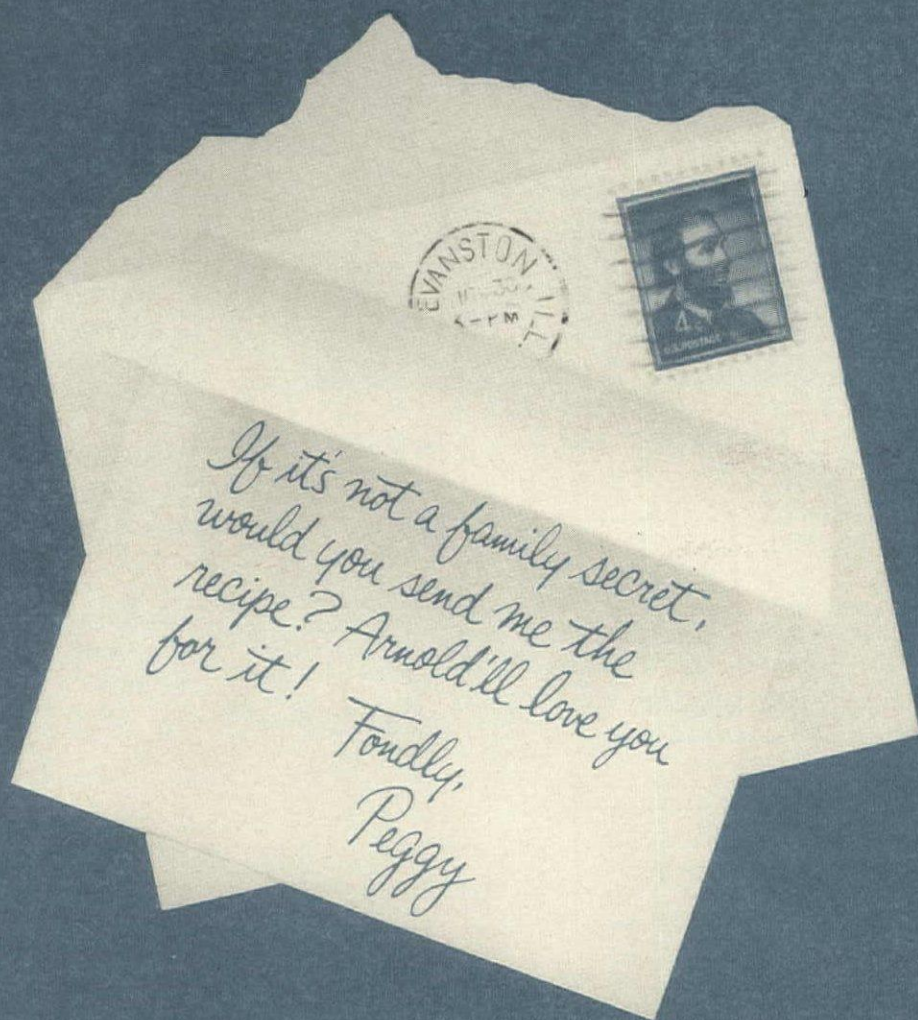 EVANSTON, ILL.
30
PM
4¢
U.S. POSTAGE
If it's not a family secret,
would you send me the
recipe? Arnold'll love you
for it!
Fondly,
Peggy